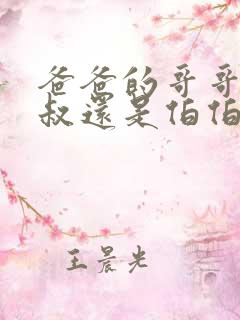 爸爸的哥哥
叔還是伯伯
王晨光